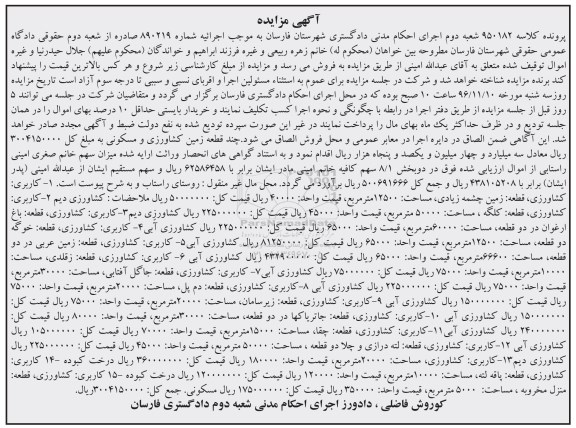 آگهی مزایده
پرونده کلاسه ۹۵۰۱۸۲ شعبه دوم اجرای احکام مدنی دادگستری شهرستان فارسان به موجب اجرائیه شماره ۸۹۰۲۱۹ صادره از شعبه دوم حقوقی دادگاه
عمومی حقوقی شهرستان فارسان مطروحه بین خواهان (محکوم له) خانم زهره ربیعی و غیره فرزند ابراهیم و خواندگان (محکوم علیهم) جلال حیدرنیا و غیره
اموال توقیف شده متعلق به آقای عبدالله امینی از طریق مزایده به فروش می رسد و مزایده از مبلغ کارشناسی زیر شروع و هر کس بالاترین قیمت را پیشنهاد
کند برنده مزایده شناخته خواهد شد و شرکت در جلسه مزایده برای عموم به استثناء مسئولین اجرا و اقربای نسبی و سببی تا درجه سوم آزاد است تاریخ مزایده
روزسه شنبه مورخه ۹۶/۱۱/۱۰ ساعت ۱۰ صبح بوده که در محل اجرای احکام دادگستری فارسان برگزار می گردد و متقاضیان شرکت در جلسه می توانند ۵
روز قبل از جلسه مزایده از طریق دفتر اجرا در رابطه با چگونگی و نحوه اجرا کسب تکلیف نمایند و خریدار بایستی حداقل ۱۰ درصد بهای اموال را در همان
جلسه تودیع و در ظرف حداکثر یک ماه بهای مال را پرداخت نمایند در غیر این صورت سپرده تودیع شده به نفع دولت ضبط و آگهی مجدد صادر خواهد
شد. این آگاهی ضمن الصاق در دایره اجرا در معابر عمومی و محل فروش الصاق می شود.چند قطعه زمین کشاورزی و مسکونی به مبلغ کل ۳۰۰۴۱۵۰۰۰۰
ریال معادل سه میلیارد و چهار میلیون و یکصد و پنجاه هزار ریال اقدام نمود و به استناد گواهی های انحصار وراثت ارایه شده میزان سهم خانم صغری امینی
راستابی از اموال ارزیابی شده فوق در دوبخش ۸/۱ سهم کافیه خانم امینی مادر ایشان برابر با ۶۲۵۸۶۴۵۸ ریال و سهم مستقیم ایشان از عبدالله امینی (پدر
ایشان) برابر با ۴۳۸۱۰۵۲۰۸ ریال و جمع کل ۵۰۰۶۹۱۶۶۶ ریال برآورد می گردد. محل مال غیر منقول : روستای راستاب و به شرح پیوست است. ۱- کاربری:
کشاورزی، قطعه: زمین چشمه زیادی، مساحت: ۱۲۵۰۰مترمربع، قیمت واحد: ۴۰۰۰ ریال قیمت کل: ۵۰۰۰۰۰۰۰ ریال ملاحضات : کشاورزی دیم ۲-کاربری:
کشاورزی، قطعه: کلگه ، مساحت: ۵۰۰۰۰ مترمربع، قیمت واحد: ۴۵۰۰ ریال قیمت کل: ۲۲۵۰۰۰۰۰۰ ریال کشاورزی دیم۳-کاربری: کشاورزی، قطعه: باغ
ارغوان در دو قطعه، مساحت: ۶۰۰۰مترمربع، قیمت واحد: ۶۵۰۰۰ ریال قیمت کل: ۲۲۵۰۰۰۰۰۰ ریال کشاورزی آبی۴- کاربری: کشاورزی، قطعه: خوگه
دو قطعه، مساحت: ۱۲۵۰۰مترمربع، قیمت واحد: ۶۵۰۰۰ ریال قیمت کل: ۸۱۲۵۰۰۰۰۰ ریال کشاورزی آبی۵- کاربری: کشاورزی، قطعه: زمین عربی در دو
قطعه، مساحت: ۶۶۶۰۰مترمربع، قیمت واحد: ۶۵۰۰۰ ریال قیمت کل: ریال کشاورزی آبی ۶- کاربری: کشاورزی، قطعه: زقلدی، مساحت:
۱۰۰۰۰مترمربع، قیمت واحد: ۷۵۰۰۰ ریال قیمت کل: ۷۵۰۰۰۰۰۰۰ ریال کشاورزی آبی۷- کاربری: کشاورزی، قطعه: جاگل آفتابی، مساحت: ۳۰۰۰۰مترمربع،
قیمت واحد: ۷۵۰۰۰ ریال قیمت کل: ۲۲۵۰۰۰۰۰۰ ریال کشاورزی آبی ۸-کاربری: کشاورزی، قطعه: دم پل، مساحت: ۲۰۰۰۰مترمربع، قیمت واحد: ۷۵۰۰۰
ریال قیمت کل: ۱۵۰۰۰۰۰۰۰ ریال کشاورزی آبی ۹-کاربری: کشاورزی، قطعه: زیرسامان، مساحت: ۲۰۰۰۰مترمربع، قیمت واحد: ۷۵۰۰۰ ریال قیمت کل:
۱۵۰۰۰۰۰۰۰ ریال کشاورزی آبی ۱۰-کاربری: کشاورزی، قطعه: جاتریاکها در دو قطعه، مساحت: ۳۰۰۰۰مترمربع، قیمت واحد: ۸۰۰۰۰ ریال قیمت کل:
۲۴۰۰۰۰۰۰۰ ریال کشاورزی آبی۱۱-کاربری: کشاورزی، قطعه: چقا، مساحت: ۱۵۰۰۰مترمربع، قیمت واحد: ۷۰۰۰۰ ریال قیمت کل: ۱۰۵۰۰۰۰۰۰ ریال
کشاورزی آبی ۱۲-کاربری: کشاورزی، قطعه: لته درازی و چلا دو قطعه ، مساحت: ۵۰۰۰۰ مترمربع، قیمت واحد: ۴۵۰۰ ریال قیمت کل: ۲۲۵۰۰۰۰۰۰ ریال
کشاورزی دیم۱۳-کاربری: کشاورزی، مساحت: ۲۰۰۰۰مترمربع، قیمت واحد: ۱۸۰۰۰۰ ریال قیمت کل: ۳۶۰۰۰۰۰۰۰ ریال درخت کبوده -۱۴ کاربری:
کشاورزی، قطعه: یاقه لته، مساحت: ۱۰۰۰۰مترمربع، قیمت واحد: ۱۲۰۰۰۰ ریال قیمت کل: ۱۲۰۰۰۰۰۰۰ ریال درخت کبوده -۱۵ کاربری: کشاورزی، قطعه:
منزل مخروبه ، مساحت: ۵۰۰۰ مترمربع، قیمت واحد: ۳۵۰۰۰۰ ریال قیمت کل: ۱۷۵۰۰۰۰۰۰ ریال مسکونی. جمع کل: ۳۰۰۴۱۵۰۰۰۰ریال.
کوروش فاضلی ، دادورز اجرای احکام مدنی شعبه دوم دادگستری فارسان